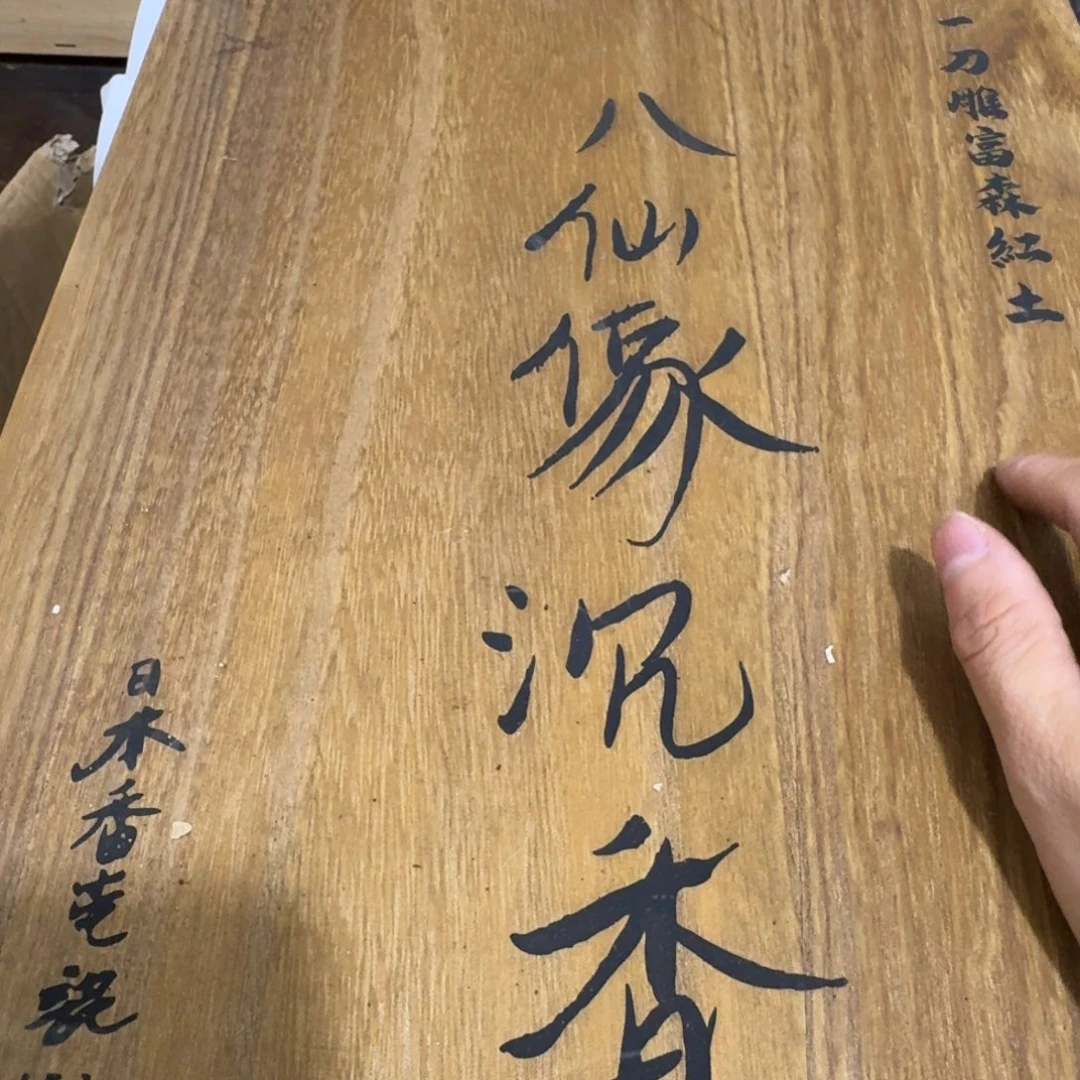 一刀雕富森紅土
八仙像沉香
日本番屯